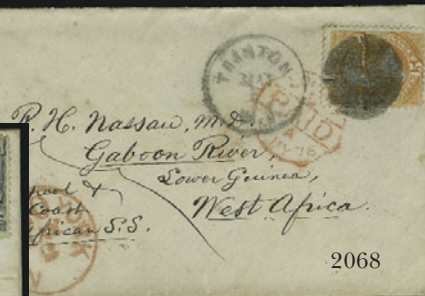 TRANTON
PAID
R. H. Nassau, M.D.
Gaboon River,
Lower Guinea,
West Africa.
pool &
Coast
African S.S.
2068